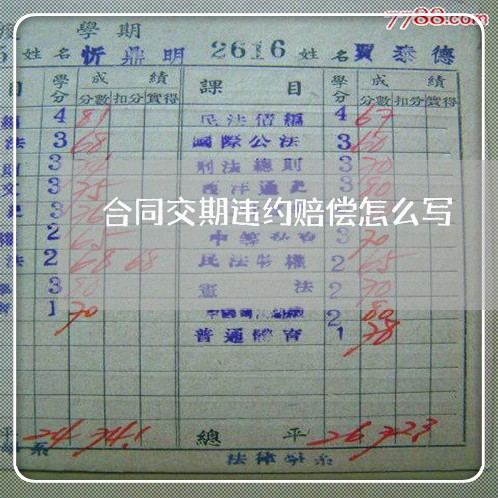 7788.com
學期
姓名 忻鼎明 2616 姓名 賈泰德
目 學分 成績 課目 學分 成績
分數 扣分 實得 分數 扣分 實得
4 81 民法債編 4 67
法 3 68 國際公法 3 60
3 刑法總則 3 70
3 75 西洋通史 3 80
合同交期违约赔偿怎么写
2 65 3 70
法 2 68 68 民法物權 2 65
3 80 憲法 2 70
1 70 2 80
普通體育 1 78
平 24 74.1 總平 26 72.3
系 法律學系